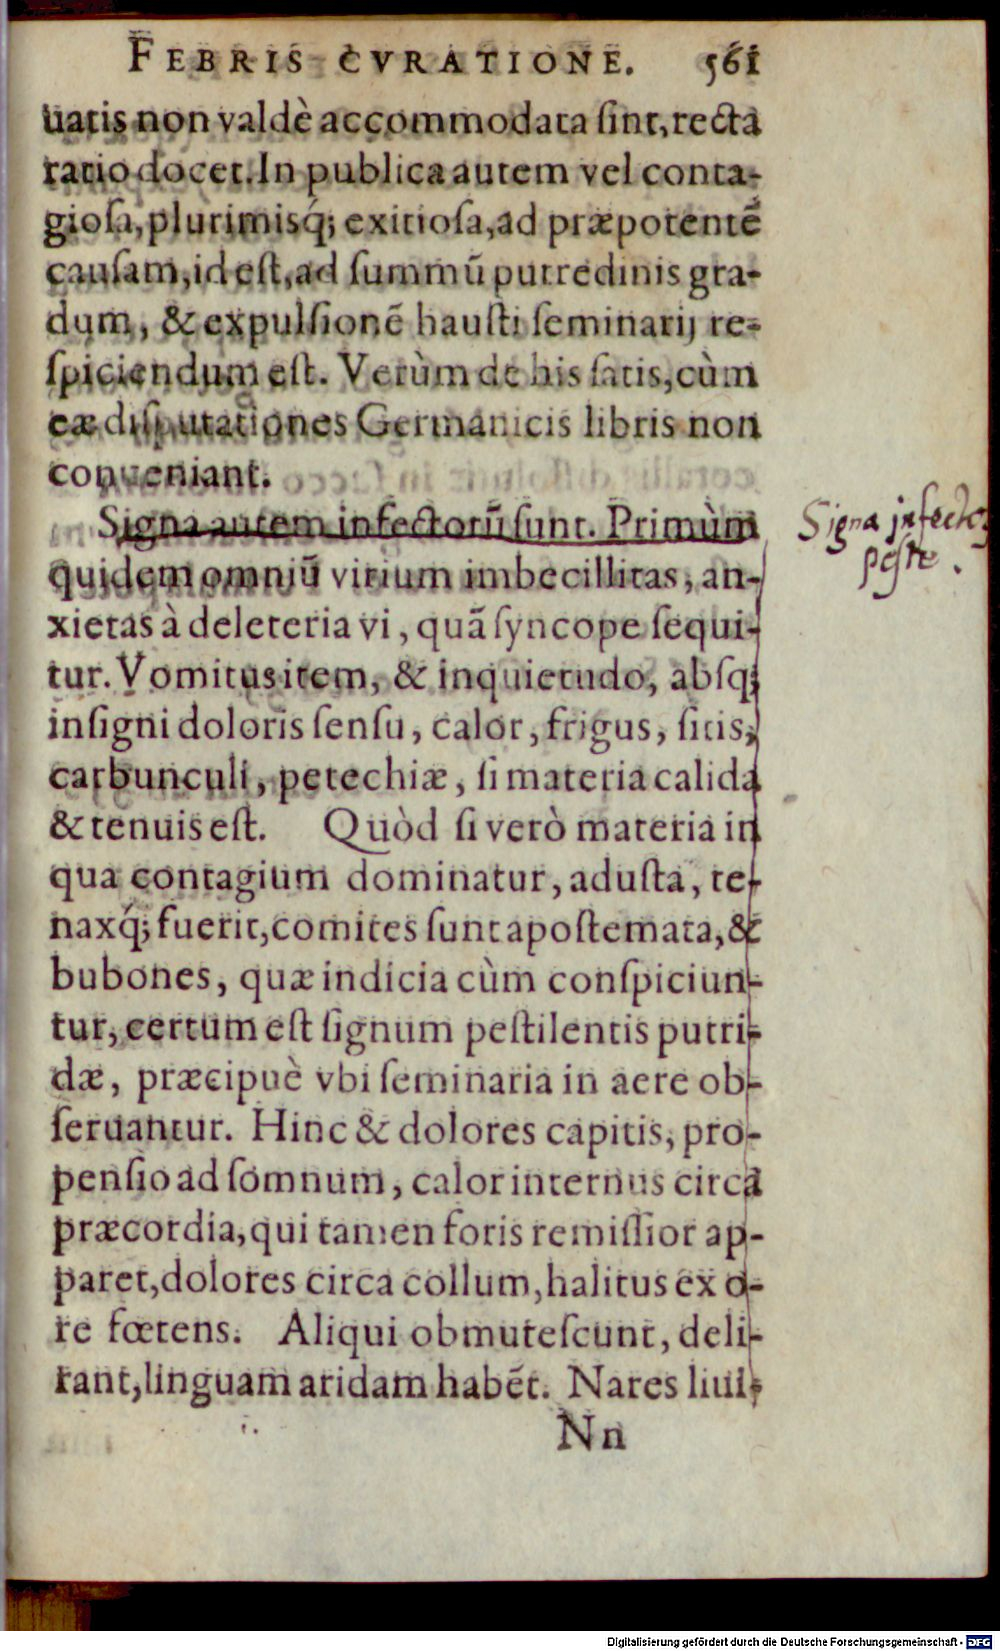 FEBRIS CVRATIONE. 561
uatis non valdè accommodata ſint, recta
ratio docet. In publica autem vel conta-
gioſa, plurimisq́; exitioſa, ad præpotentẽ
cauſam, id eſt, ad ſummũ putredinis gra-
dum, & expulſionẽ hauſti ſeminarij re-
ſpiciendum eſt. Verùm de his ſatis, cùm
eæ diſputationes Germanicis libris non
conueniant.
Signa autem infectorũ ſunt. Primùm
Signa infectos
peste.
quidem omniũ virium imbecillitas, an-
xietas à deleteria vi, quã ſyncope ſequi-
tur. Vomitus item, & inquietudo, abſq;
inſigni doloris ſenſu, calor, frigus, ſitis,
carbunculi, petechiæ, ſi materia calida
& tenuis eſt. Quòd ſi verò materia in
qua contagium dominatur, aduſta, te-
naxq́; fuerit, comites ſunt apoſtemata, &
bubones, quæ indicia cùm conſpiciun-
tur, certum eſt ſignum peſtilentis putri-
dæ, præcipuè vbi ſeminaria in aere ob-
ſeruantur. Hinc & dolores capitis, pro-
penſio ad ſomnum, calor internus circa
præcordia, qui tamen foris remiſſior ap-
paret, dolores circa collum, halitus ex o-
re fœtens. Aliqui obmuteſcunt, deli-
rant, linguam aridam habẽt. Nares liui-
Nn
Digitalisierung gefördert durch die Deutsche Forschungsgemeinschaft - DFG